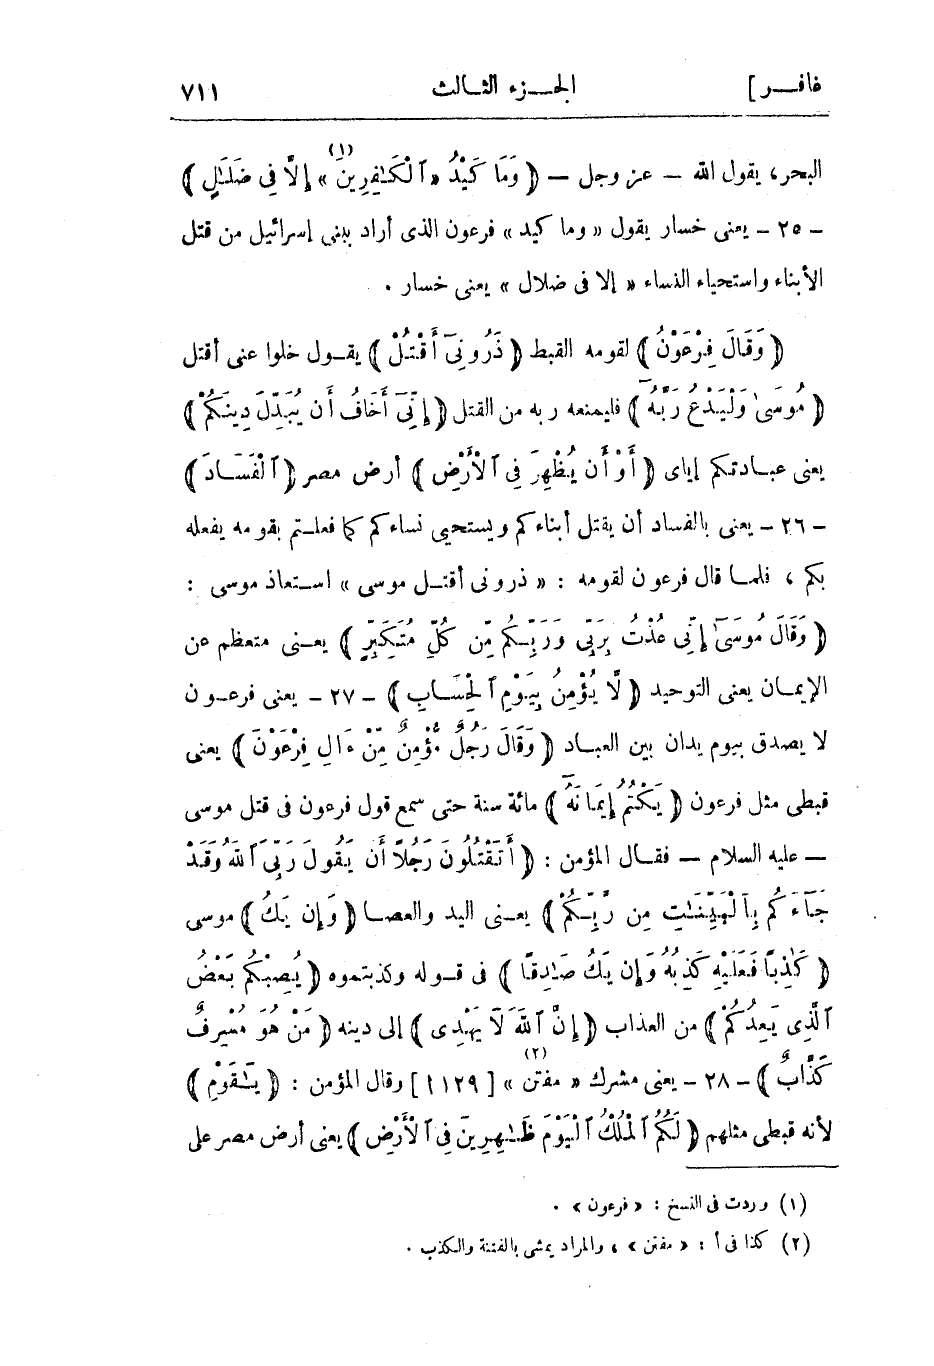 غافر ] الجزء الثالث ٧١١
البحر، يقول الله — عز وجل — ﴿ وَمَا كَيْدُ « ٱلْكَـٰفِرِينَ »(١) إِلَّا فِى ضَلَـٰلٍ ﴾
- ٢٥ - يعنى خسار يقول « وما كيد » فرعون الذى أراد ببنى إسرائيل من قتل
الأبناء واستحياء النساء « إلا فى ضلال » يعنى خسار .
﴿ وَقَالَ فِرْعَوْنُ ﴾ لقومه القبط ﴿ ذَرُونِىٓ أَقْتُلْ ﴾ يقول خلوا عنى أقتل
﴿ مُوسَىٰ وَلْيَدْعُ رَبَّهُۥٓ ﴾ فليمنعه ربه من القتل ﴿ إِنِّىٓ أَخَافُ أَن يُبَدِّلَ دِينَكُمْ ﴾
يعنى عبادتكم إياى ﴿ أَوْ أَن يُظْهِرَ فِى ٱلْأَرْضِ ﴾ أرض مصر ﴿ ٱلْفَسَادَ ﴾
- ٢٦ - يعنى بالفساد أن يقتل أبناءكم ويستحيى نساءكم كما فعلتم بقومه يفعله
بكم ، فلما قال فرعون لقومه : « ذرونى أقتل موسى » استعاذ موسى :
﴿ وَقَالَ مُوسَىٰٓ إِنِّى عُذْتُ بِرَبِّى وَرَبِّكُم مِّن كُلِّ مُتَكَبِّرٍ ﴾ يعنى متعظم عن
الإيمان يعنى التوحيد ﴿ لَّا يُؤْمِنُ بِيَوْمِ ٱلْحِسَابِ ﴾ - ٢٧ - يعنى فرعون
لا يصدق بيوم يدان بين العباد ﴿ وَقَالَ رَجُلٌ مُّؤْمِنٌ مِّنْ ءَالِ فِرْعَوْنَ ﴾ يعنى
قبطى مثل فرعون ﴿ يَكْتُمُ إِيمَانَهُۥٓ ﴾ مائة سنة حتى سمع قول فرعون فى قتل موسى
— عليه السلام — فقال المؤمن : ﴿ أَتَقْتُلُونَ رَجُلًا أَن يَقُولَ رَبِّىَ ٱللَّهُ وَقَدْ
جَآءَكُم بِٱلْبَيِّنَـٰتِ مِن رَّبِّكُمْ ﴾ يعنى اليد والعصا ﴿ وَإِن يَكُ ﴾ موسى
﴿ كَـٰذِبًا فَعَلَيْهِ كَذِبُهُۥ وَإِن يَكُ صَادِقًا ﴾ فى قوله وكذبتموه ﴿ يُصِبْكُم بَعْضُ
ٱلَّذِى يَعِدُكُمْ ﴾ من العذاب ﴿ إِنَّ ٱللَّهَ لَا يَهْدِى ﴾ إلى دينه ﴿ مَنْ هُوَ مُسْرِفٌ
كَذَّابٌ ﴾ - ٢٨ - يعنى مشرك « مفتن »(٢) [ ١١٢٩ ] وقال المؤمن : ﴿ يَـٰقَوْمِ ﴾
لأنه قبطى مثلهم ﴿ لَكُمُ ٱلْمُلْكُ ٱلْيَوْمَ ظَـٰهِرِينَ فِى ٱلْأَرْضِ ﴾ يعنى أرض مصر على
(١) وردت فى النسخ : « فرعون » .
(٢) كذا فى أ : « مفتن » ، والمراد يمشى بالفتنة والكذب .